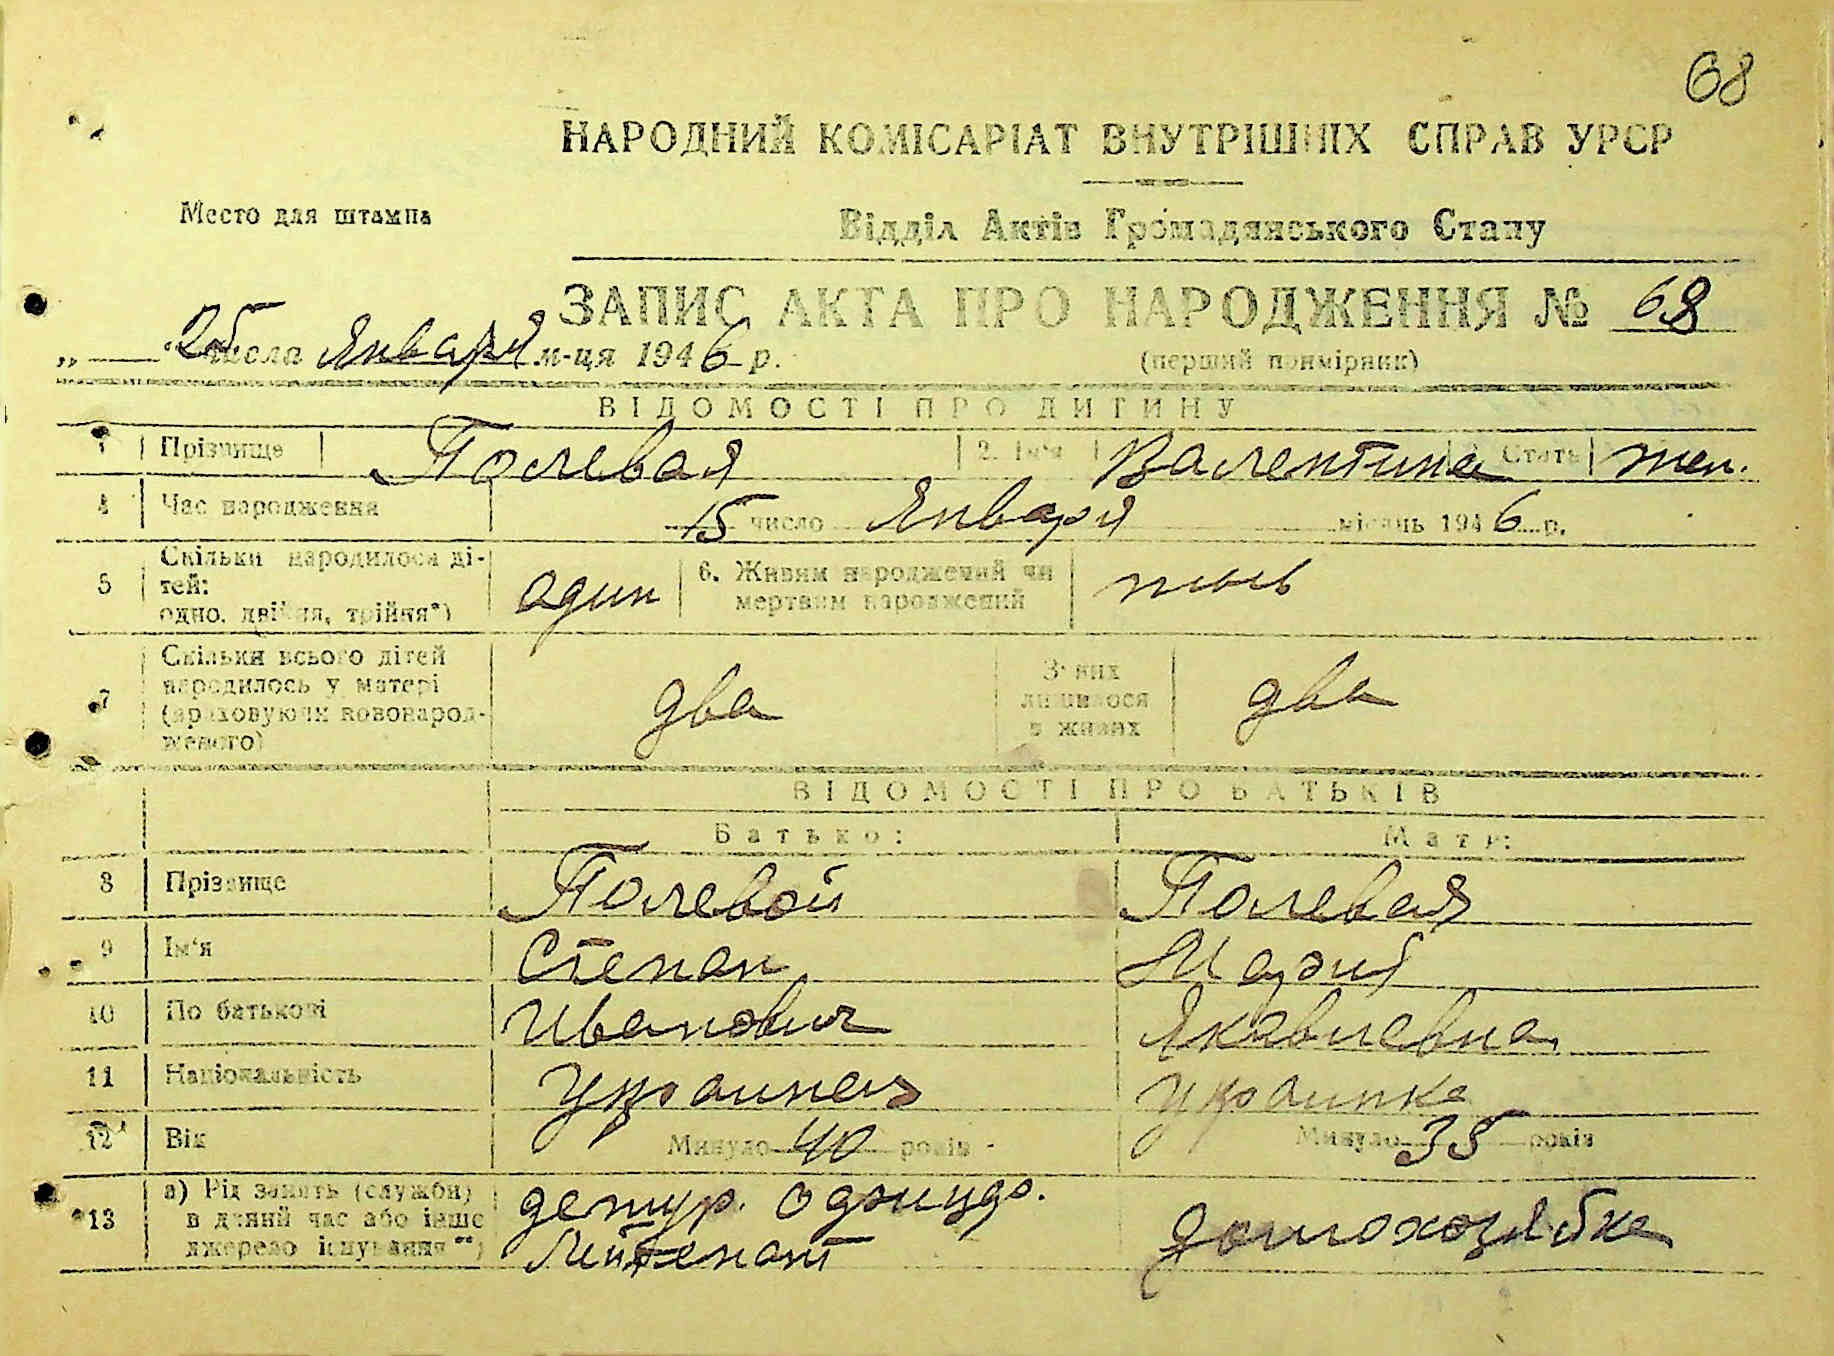 68
НАРОДНИЙ КОМІСАРІАТ ВНУТРІШНІХ СПРАВ УРСР
Место для штампа
Відділ Актів Громадянського Стану
ЗАПИС АКТА ПРО НАРОДЖЕННЯ № 68
„ 25 “ числа Января м-ця 1946 р.
(перший примірник)
ВІДОМОСТІ ПРО ДИТИНУ
1 Прізвище Полевая 2. Ім'я Валентина 3. Стать жен.
4 Час народження 15 число Января місяць 1946 р.
5 Скільки народилося дітей: одно, двійня, трійня*) один 6. Живим народжений чи мертвим народжений
7 Скільки всього дітей народилось у матері (враховуючи новонародженого) два З них лишилося в живих два
ВІДОМОСТІ ПРО БАТЬКІВ
Батько: Мати:
8 Прізвище Полевой Полевая
9 Ім'я Степан Мария
10 По батькові Иванович Яковлевна
11 Національність Украинец Украинка
12 Вік Минуло 40 років Минуло 35 років
13 а) Рід занять (служби) в даний час або інше джерело існування**) дежур. Лейтенант Домохозяйка